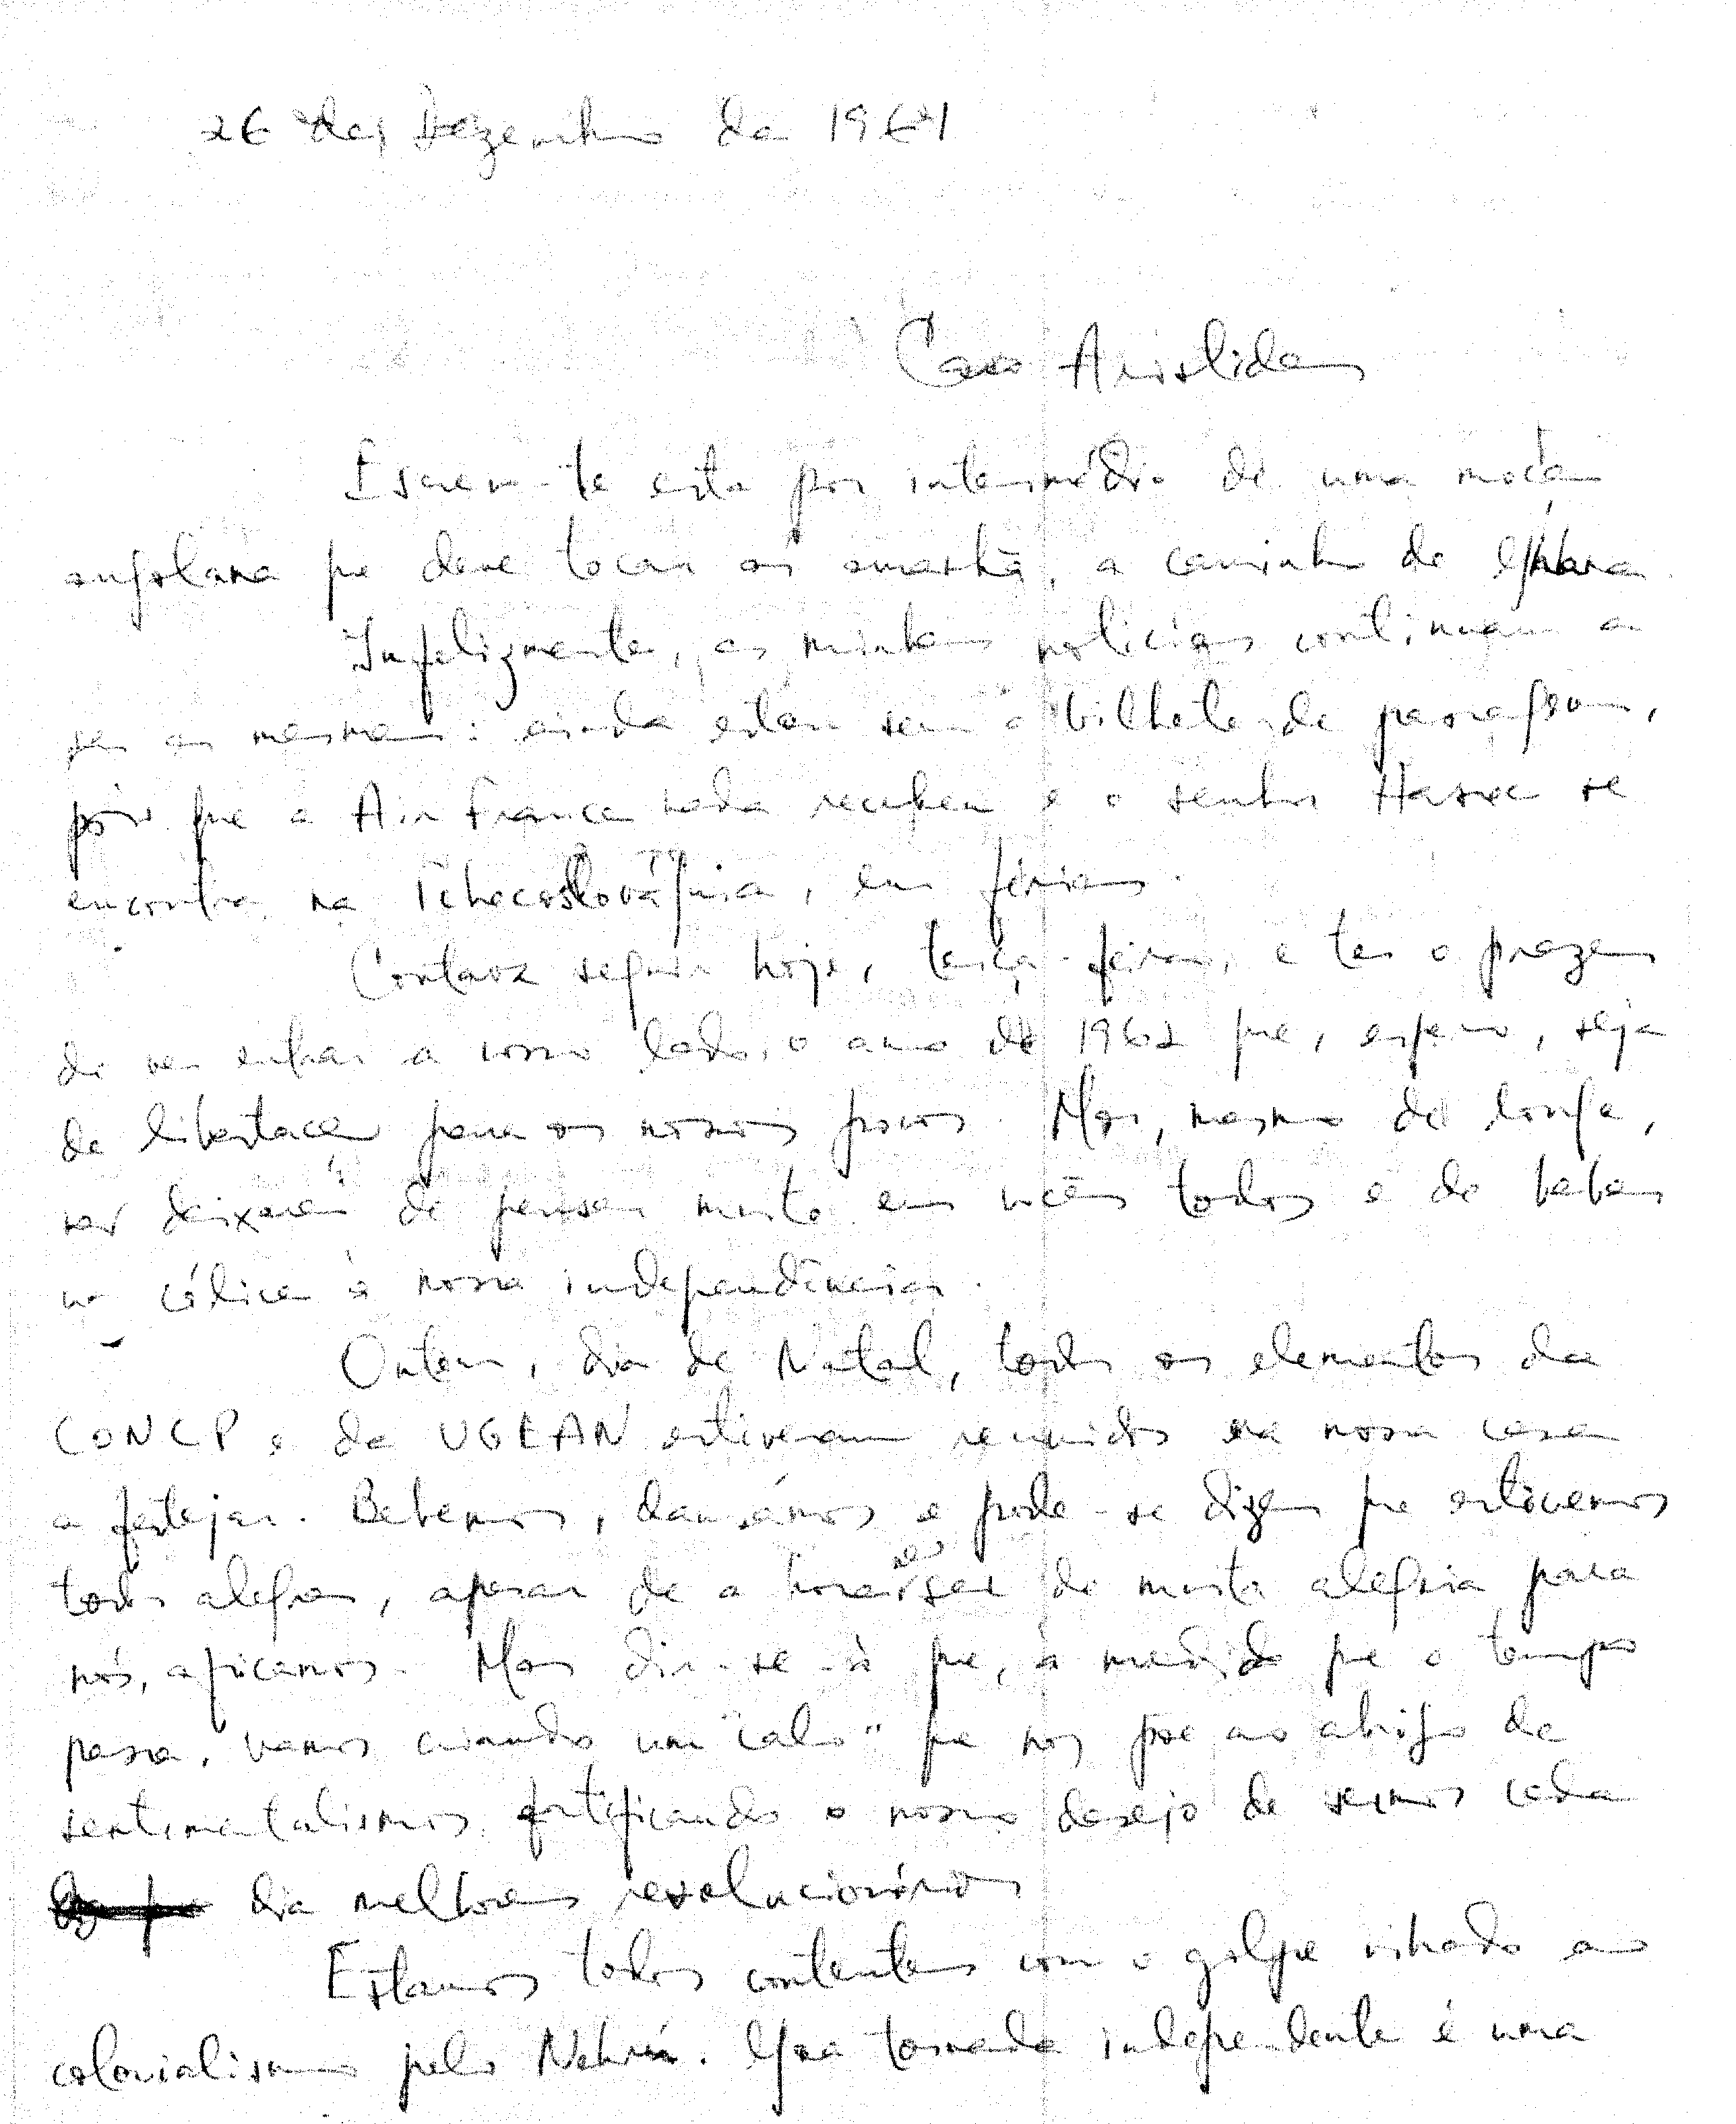 26 de Dezembro de 1961
Caro Aristides
Escrevo-te esta por intermédio de uma moça
angolana que deve tocar aí amanhã, a caminho de Ghana.
Infelizmente, as minhas notícias continuam a
ser as mesmas: ainda estou sem o bilhete de passagem,
por que a Air France nada recebeu e o senhor se
encontra na Tchecoslováquia, em férias.
Contava seguir hoje, terça-feira, e ter o prazer
de ver entrar a vosso lado, o ano de 1962 que, espero, seja
de libertação para os nossos povos. Mas, mesmo de longe,
não deixarei de pensar muito em vocês todos e de beber
um cálice à nossa independência.
Ontem, dia de Natal, todos os elementos da
CONCP e da UGEAN estiveram reunidos na nossa casa
a festejar. Bebemos, dansámos e pode-se dizer que estivemos
todos alegres, apesar de a hora não ser de muita alegria para
nós, africanos. Mas dir-se-á que, à medida que o tempo
passa, vamos criando um "calo" que nos põe ao abrigo de
sentimentalismos, fortificando o nosso desejo de sermos cada
dia melhores revolucionários
Estamos todos contentes com o golpe vibrado ao
colonialismo pelo Nehru. Goa tornada independente é uma